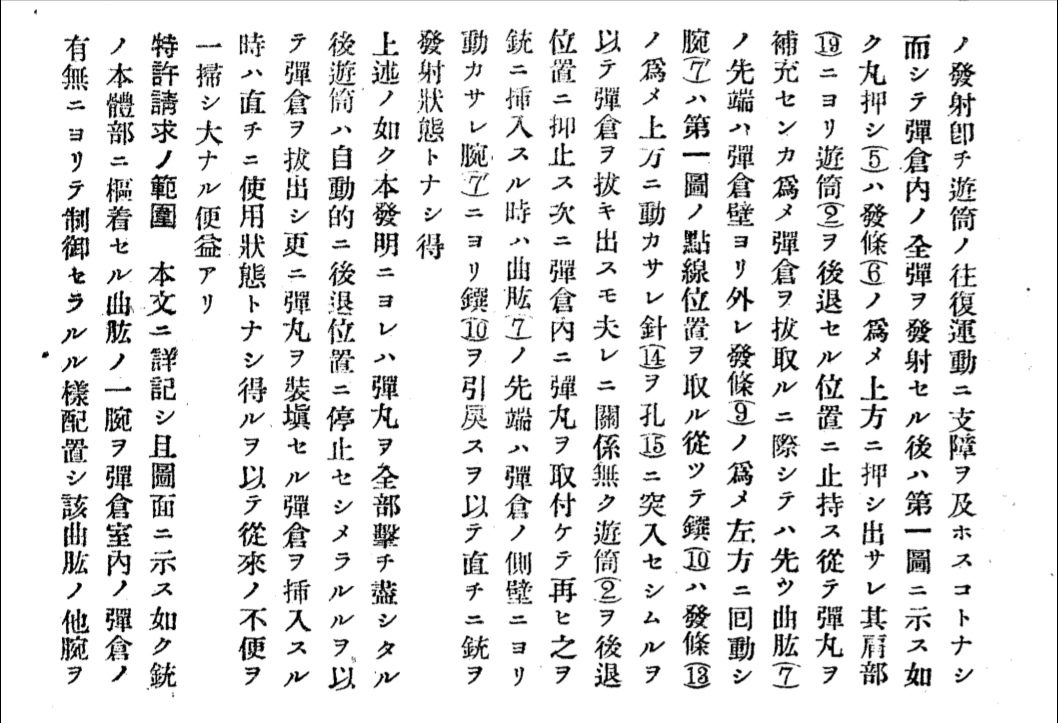 ノ發射卽チ遊筒ノ往復運動ニ支障ヲ及ホスコトナシ
而シテ彈倉內ノ全彈ヲ發射セル後ハ第一圖ニ示ス如
ク丸押シ(5)ハ發條(6)ノ爲メ上方ニ押シ出サレ其肩部
(19)ニヨリ遊筒(2)ヲ後退セル位置ニ止持ス從テ彈丸ヲ
補充センカ爲メ彈倉ヲ拔取ルニ際シテハ先ツ曲肱(7)
ノ先端ハ彈倉壁ヨリ外レ發條(9)ノ爲メ左方ニ回動シ
腕(7)ハ第一圖ノ點線位置ヲ取ル從ツテ鐉(10)ハ發條(13)
ノ爲メ上方ニ動カサレ針(14)ヲ孔(15)ニ突入セシムルヲ
以テ彈倉ヲ拔キ出スモ夫レニ關係無ク遊筒(2)ヲ後退
位置ニ抑止ス次ニ彈倉內ニ彈丸ヲ取付ケテ再ヒ之ヲ
銃ニ挿入スル時ハ曲肱(7)ノ先端ハ彈倉ノ側壁ニヨリ
動カサレ腕(7)ニヨリ鐉(10)ヲ引戾スヲ以テ直チニ銃ヲ
發射狀態トナシ得
上述ノ如ク本發明ニヨレハ彈丸ヲ全部擊チ盡シタル
後遊筒ハ自動的ニ後退位置ニ停止セシメラルルヲ以
テ彈倉ヲ拔出シ更ニ彈丸ヲ裝塡セル彈倉ヲ挿入スル
時ハ直チニ使用狀態トナシ得ルヲ以テ從來ノ不便ヲ
一掃シ大ナル便益アリ
特許請求ノ範圍　本文ニ詳記シ且圖面ニ示ス如ク銃
ノ本體部ニ樞着セル曲肱ノ一腕ヲ彈倉室內ノ彈倉ノ
有無ニヨリテ制御セラルル樣配置シ該曲肱ノ他腕ヲ